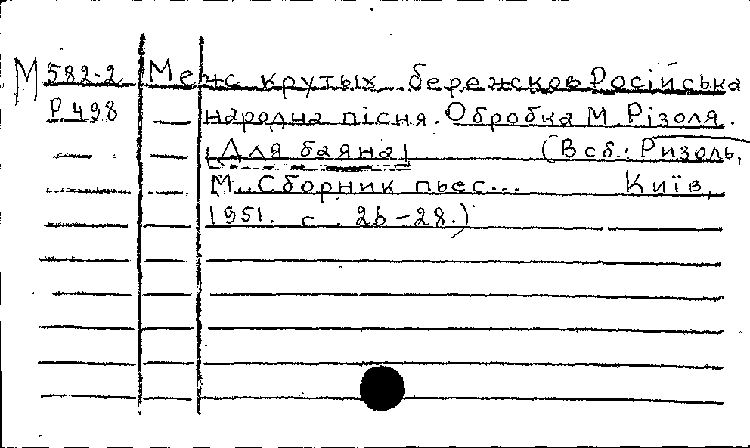 М 582-2 Меж крутых бережков Російська
Р 498 народна пісня. Обробка М. Різоля.
[Для баяна] (В сб.: Ризоль,
М. Сборник пьес... Київ,
1951. с. 26-28.)